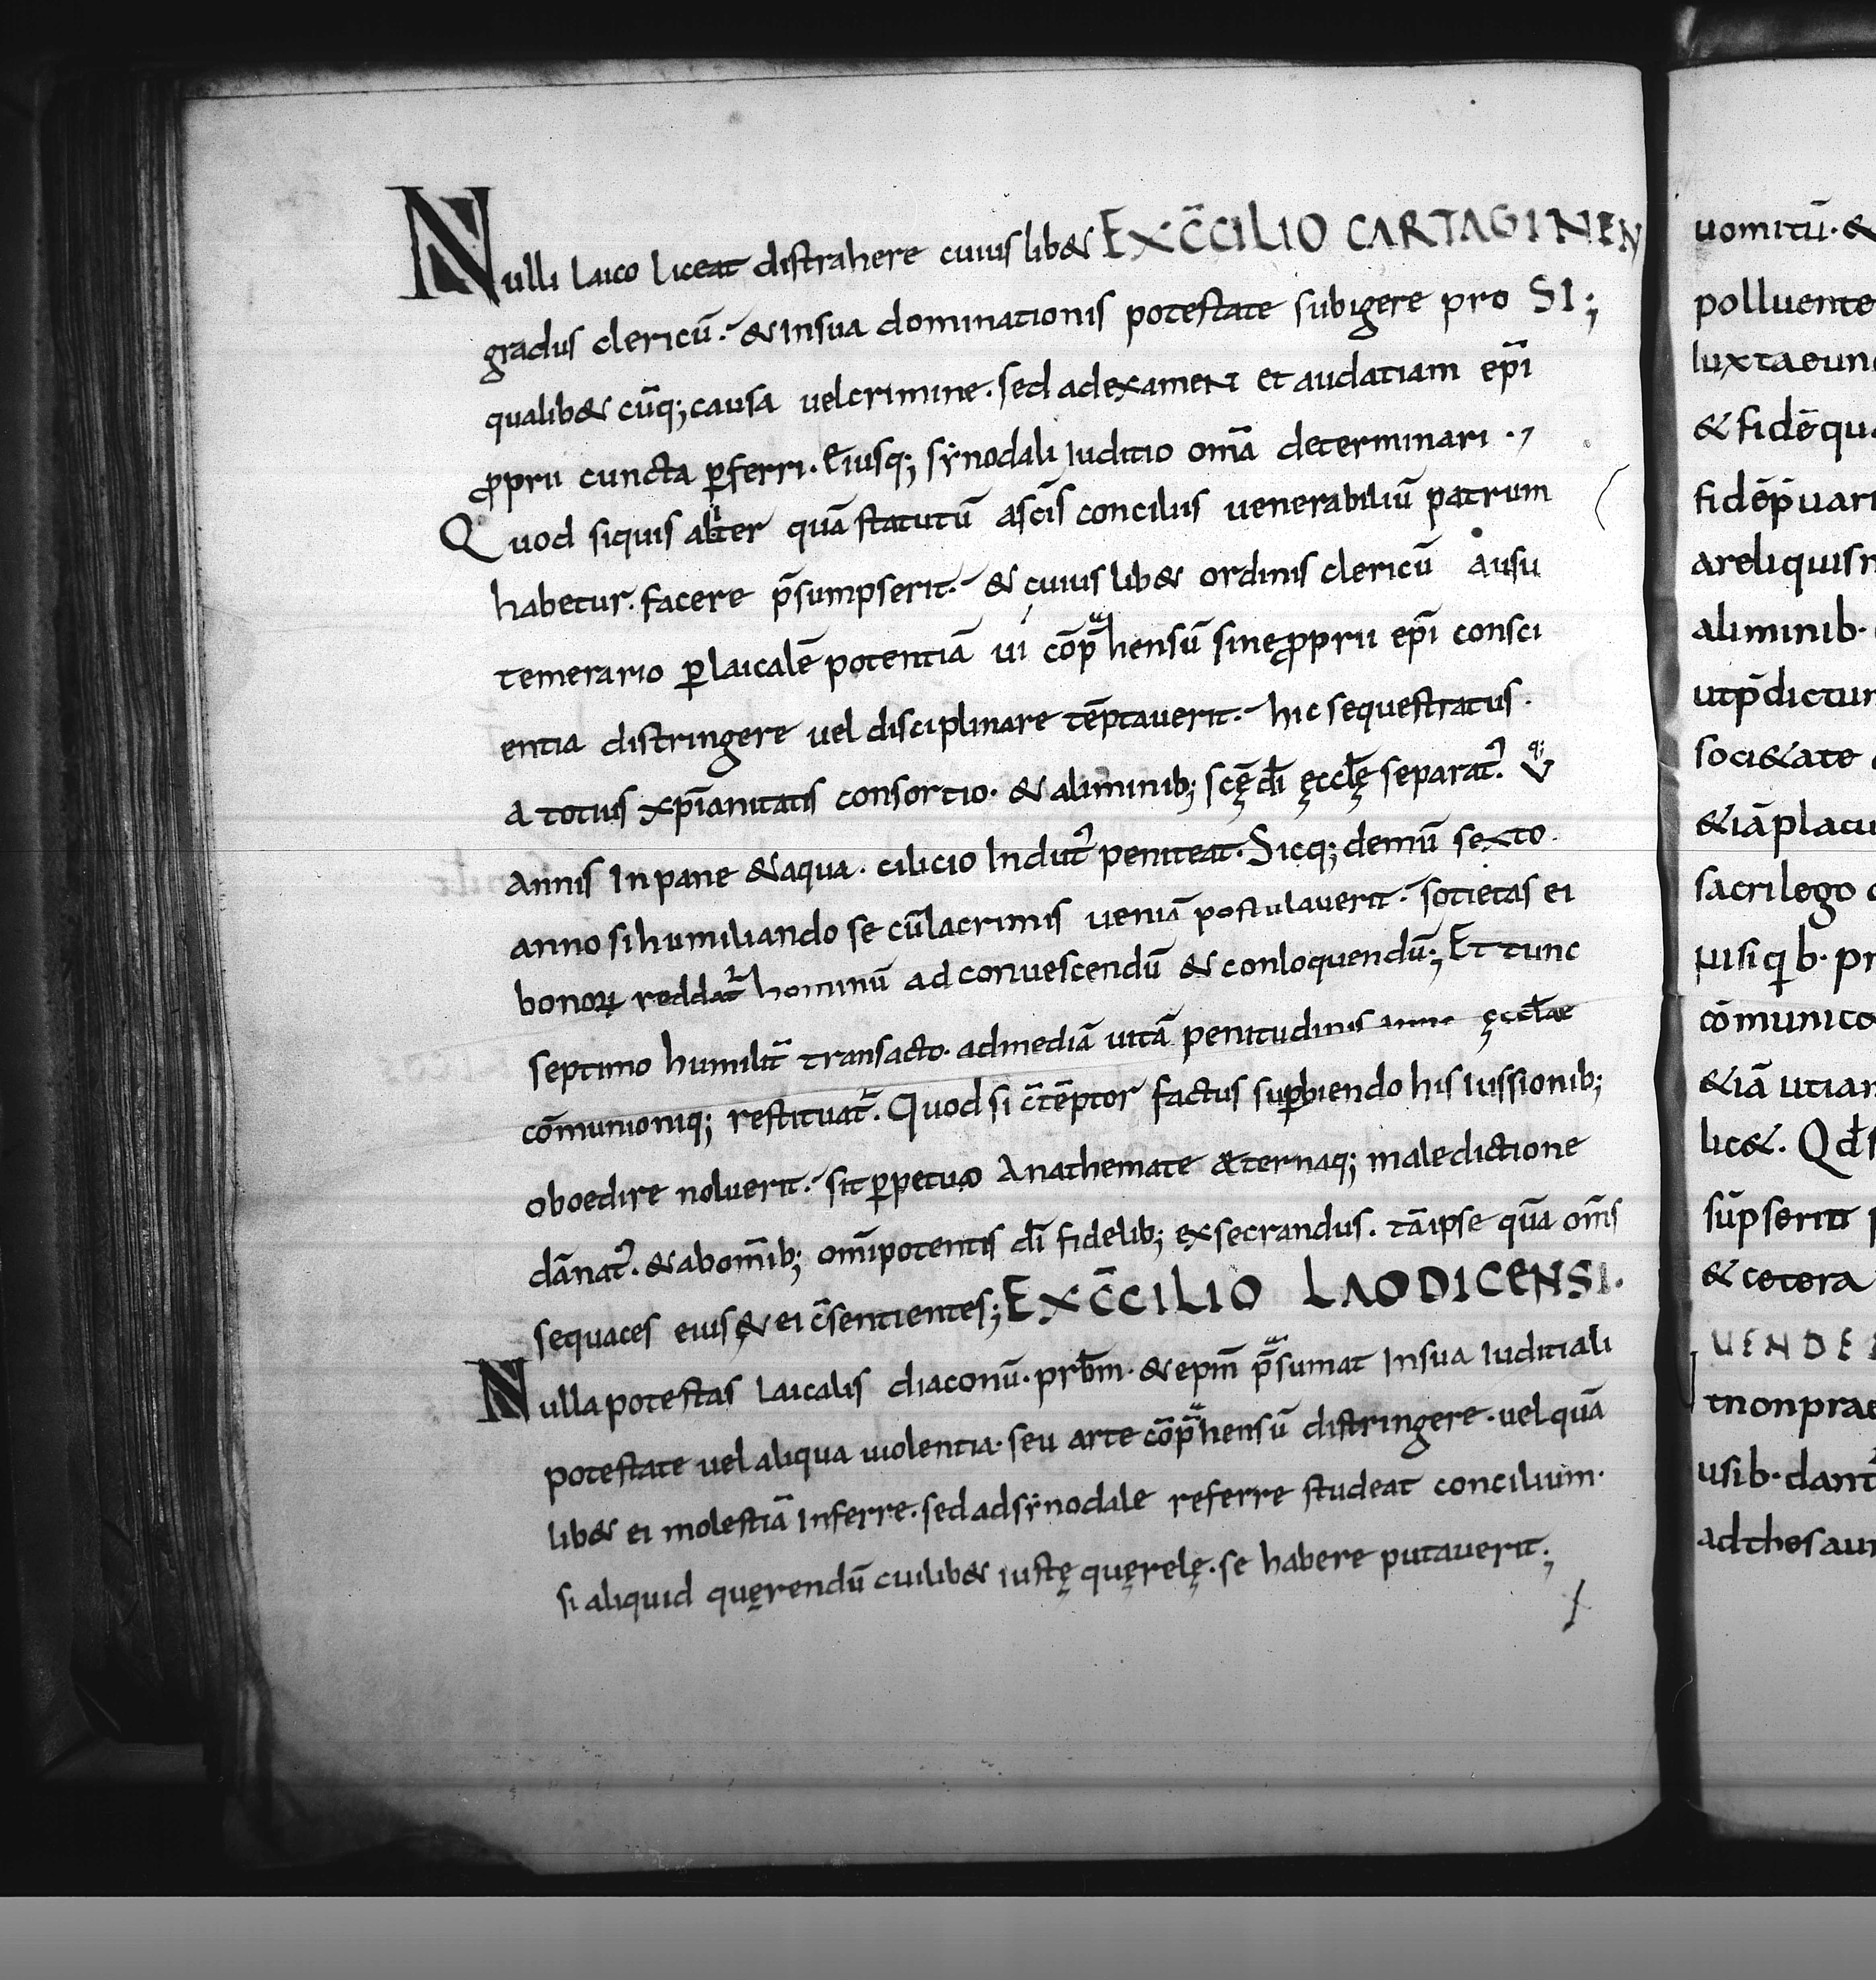 Nulli laico liceat distrahere cuiuslib& EX CC̄ILIO CARTAGINEN
gradus clericū. & insua dominationis potestate subigere pro SI;
qualib& cūq; causa uel crimine. sed adexamen et audatiam ep̄i
ꝓprii cuncta ꝑferri. Eiusq; sẏnodali iuditio om̄a determinari .,
Quod siquis alit̄er quā statutū asc̄is conciliis uenerabiliū patrum
habetur. facere p̄sumpserit. & cuiuslib& ordinis clericū ausu
temerario ꝑ laicalē potentiā ui cōp̄hensū sine ꝓprii ep̄i consci
entia distringere uel disciplinare tēptauerit. hic sequestratus.
a totius xp̄ianitatis consortio. & aliminib; sc̄ę dī ęccl̄ę separat᷒. V
annis In pane & aqua. cilicio Indut᷒ peniteat. Sicq; demū sexto.
anno si humiliando se cū lacrimis ueniā postulauerit. sotietas ei
bonoꝝ reddat᷒ hominū ad conuescendū & conloquendū; Et tunc
septimo humilit̄ transacto. admediā uitā penitudinis anno ęccl̄ae
cōmunioniq; restituat᷒. Quod si c̄tēptor factus suꝑbiendo his iussionib;
oboedire noluerit. sit ꝑpetuo Anathemate æternaq; maledictione
dānat᷒. & abom̄ib; om̄ipotentis dī fidelib; exsecrandus. tā ipse quā om̄s
sequaces eius & ei c̄sentientes; EX CC̄ILIO LAODICENSI.
Nulla potestas laicalis diaconū. prb̄m. & ep̄m p̄sumat Insua Iuditiali
potestate uel aliqua uiolentia. seu arte cōp̄hensū distringere. uel quā
lib& ei molestiā Inferre. sed ad sẏnodale referre studeat concilium.
si aliquid quęrendū cuilib& iustę quęrelę. se habere putauerit;
uomitū. &
polluente
Iuxta eun
& fidē qua
fidē p̄uari
areliquis
aliminib.
utp̄dictum
soci&ate
& iā placu
sacrilego
cōmunico
& iā utiam
lic&. Qd̄
sūpserit
& cetera
UENDE
tnonprae
usib. dant
adthesaur